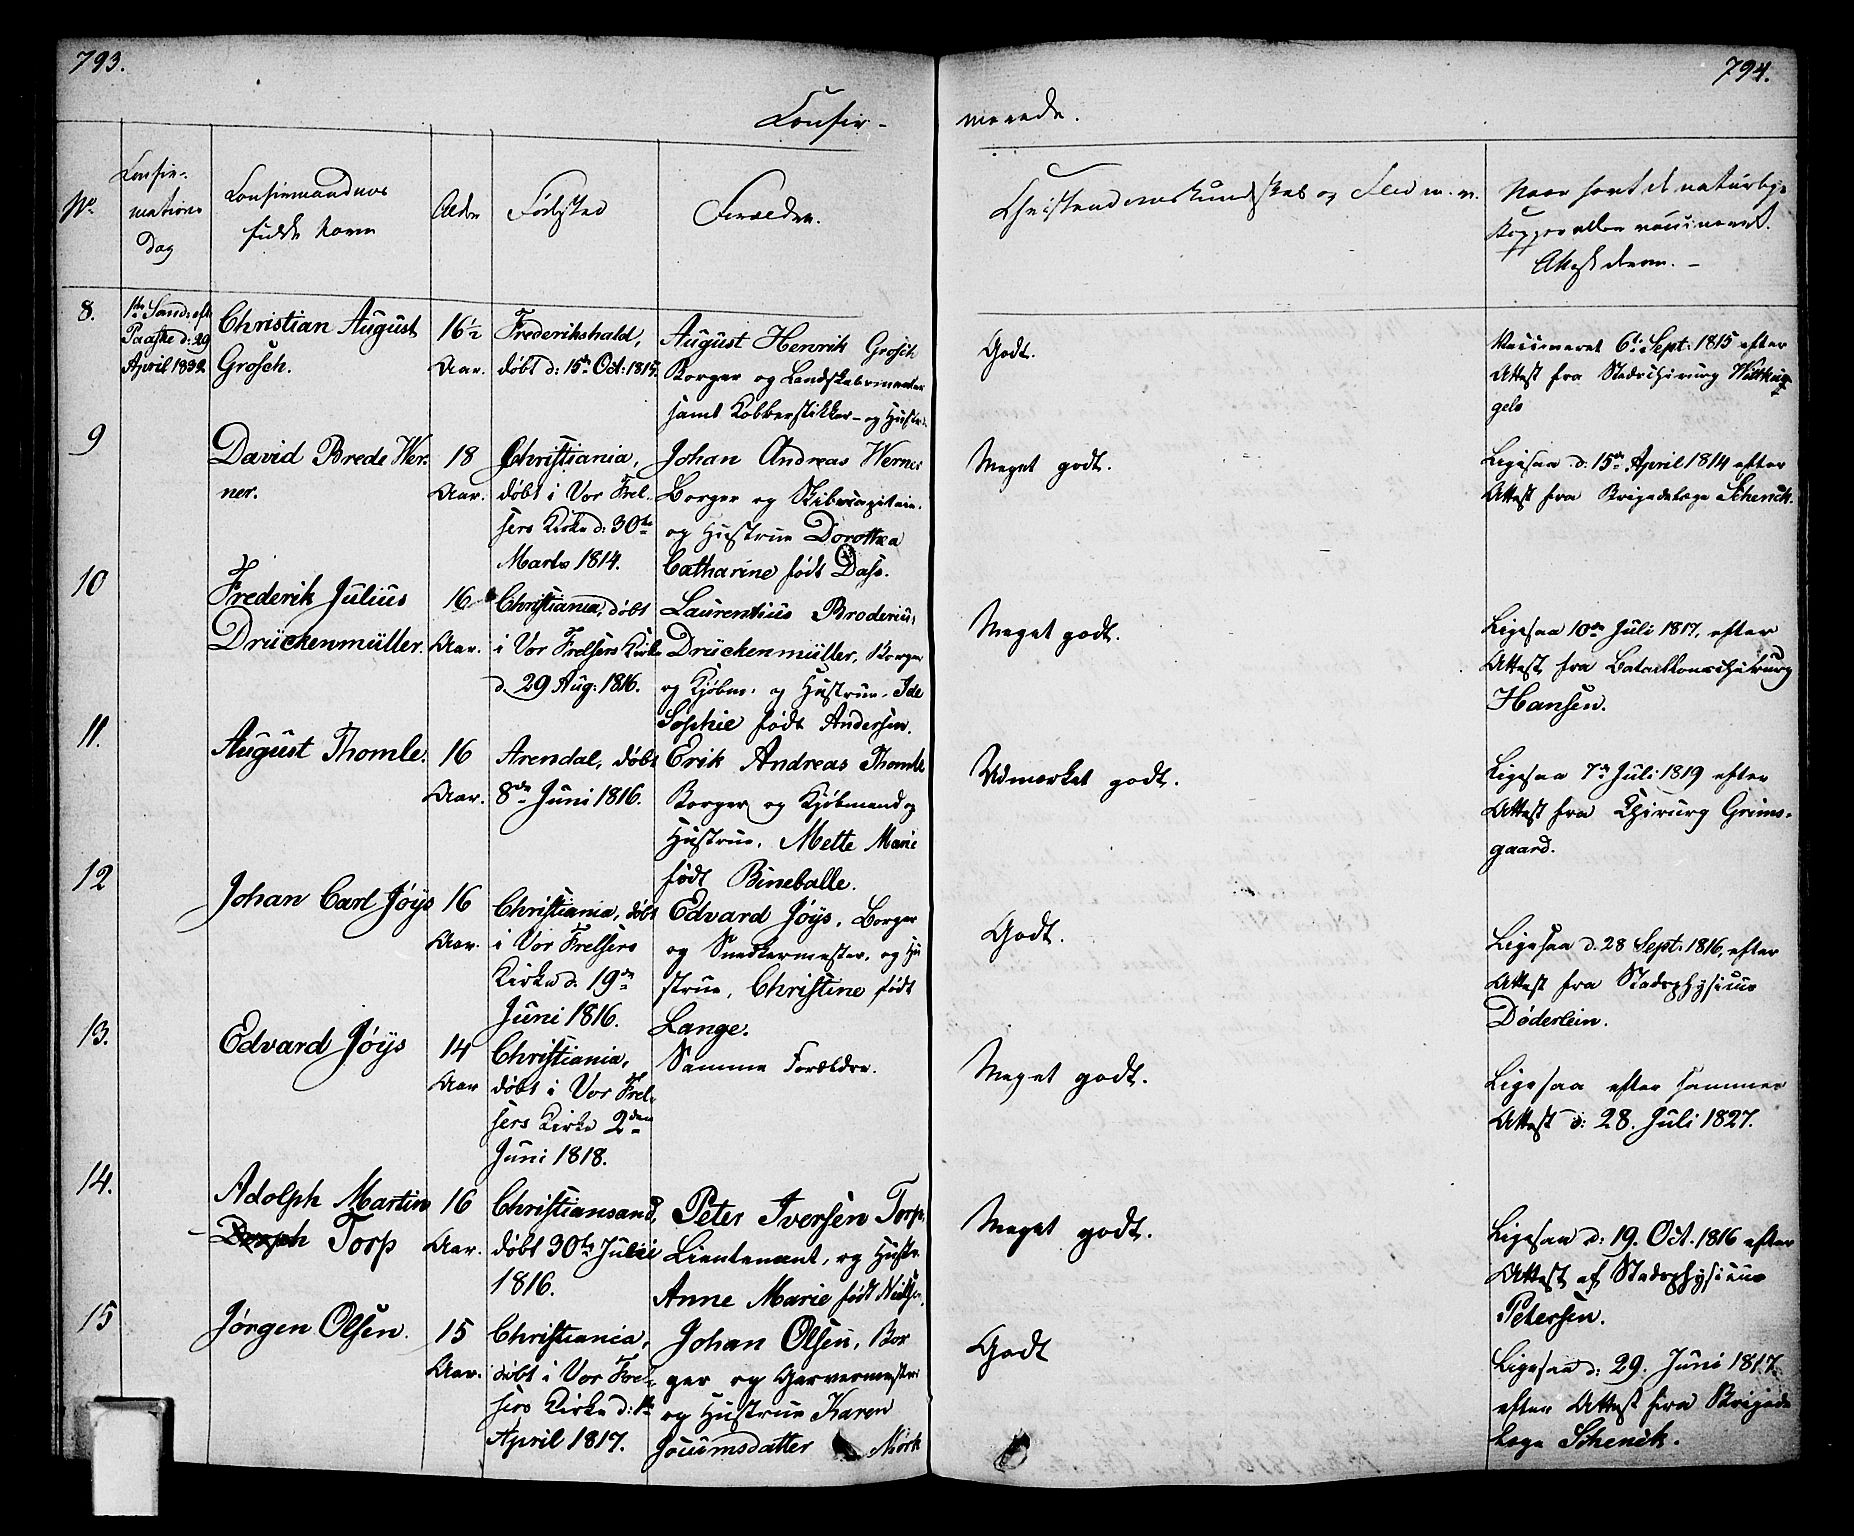 793.
794.
Confir-
merede.
No.
Confir-
mations
Dag
Confirmandens
fulde Navn
Alder
Fødested
Forældre.
Christendomskundskab og Flid m. v.
Naar havt de naturlige
Kopper eller vaccineret.
Attest derom. -
8.
1ste Sønd: eft.
Paaske d: 29
April 1832
Christian August
Grosch.
16½
Aar.
Frederikshald,
døbt d: 15de Oct: 1815.
August Henrik Grosch
Borger og Landskabsmaler
samt Kobberstikker- og Hustru
Godt.
Vaccineret 6te Sept: 1815 efter
Attest fra Stadschirurg
9
David Brede Wer-
ner.
18
Aar.
Christiania,
døbt i Vor Frel-
sers Kirke d: 30te
Marts 1814.
Johan Andreas Werner
Borger og Skibscapitain
og Hustrue Dorothea
Catharine født Dass.
Meget godt.
Ligesaa d. 15de April 1814 efter
Attest fra Brigadelæge Schenck.
10
Frederik Julius
Drückenmüller.
16
Aar.
Christiania, døbt
i Vor Frelsers Kirke
d. 29 Aug: 1816.
Laurentius Broderius
Drückenmüller, Borger
og Kjøbm: og Hustrue, Ide
Sophie født Andersen.
Meget godt.
Ligesaa 10de Juli 1817, efter
Attest fra Bataillonschirurg
Hansen.
11.
August Thomle.
16
Aar.
Arendal, døbt
8de Juni 1816.
Erik Andreas Thomle
Borger og Kjøbmand og
Hustrue, Mette Marie
født Bineballe.
Udmærket godt.
Ligesaa 7de Juli 1819 efter
Attest fra Chirurg Grims-
gaard.
12
Johan Carl Jøys
16
Aar.
Christiania, døbt
i Vor Frelsers
Kirke d. 19de
Juni 1816.
Edvard Jøys, Borger
og Snedkermester, og Hu
strue, Christine født
Lange.
Godt.
Ligesaa d. 28 Sept: 1816, efter
Attest fra Stadsphysicus
Døderlein.
13.
Edvard Jøys
14
Aar
Christiania,
døbt i Vor Frel-
sers Kirke 2den
Juni 1818.
Samme Forældre.
Meget godt.
Ligesaa efter sammes
Attest d: 28. Juli 1827.
14.
Adolph Martin
Torp
16
Aar.
Christiansand,
døbt 30te Julii
1816.
Peter Iversen Torp,
Lieutenant, og Hustr.
Anne Marie født Nielsen.
Meget godt.
Ligesaa d: 19. Oct. 1816 efter
Attest af Stadsphysicus
Petersen.
15
Jørgen Olsen.
15
Aar.
Christiania,
døbt i Vor Frel-
sers Kirke d: 1ste
April 1817.
Johan Olsen, Bor
ger og Garvermester
og Hustrue Karen
Joсumsdatter Mørk
Godt
Ligesaa d: 29. Juni 1817
efter Attest fra Brigade
læge Schenck.